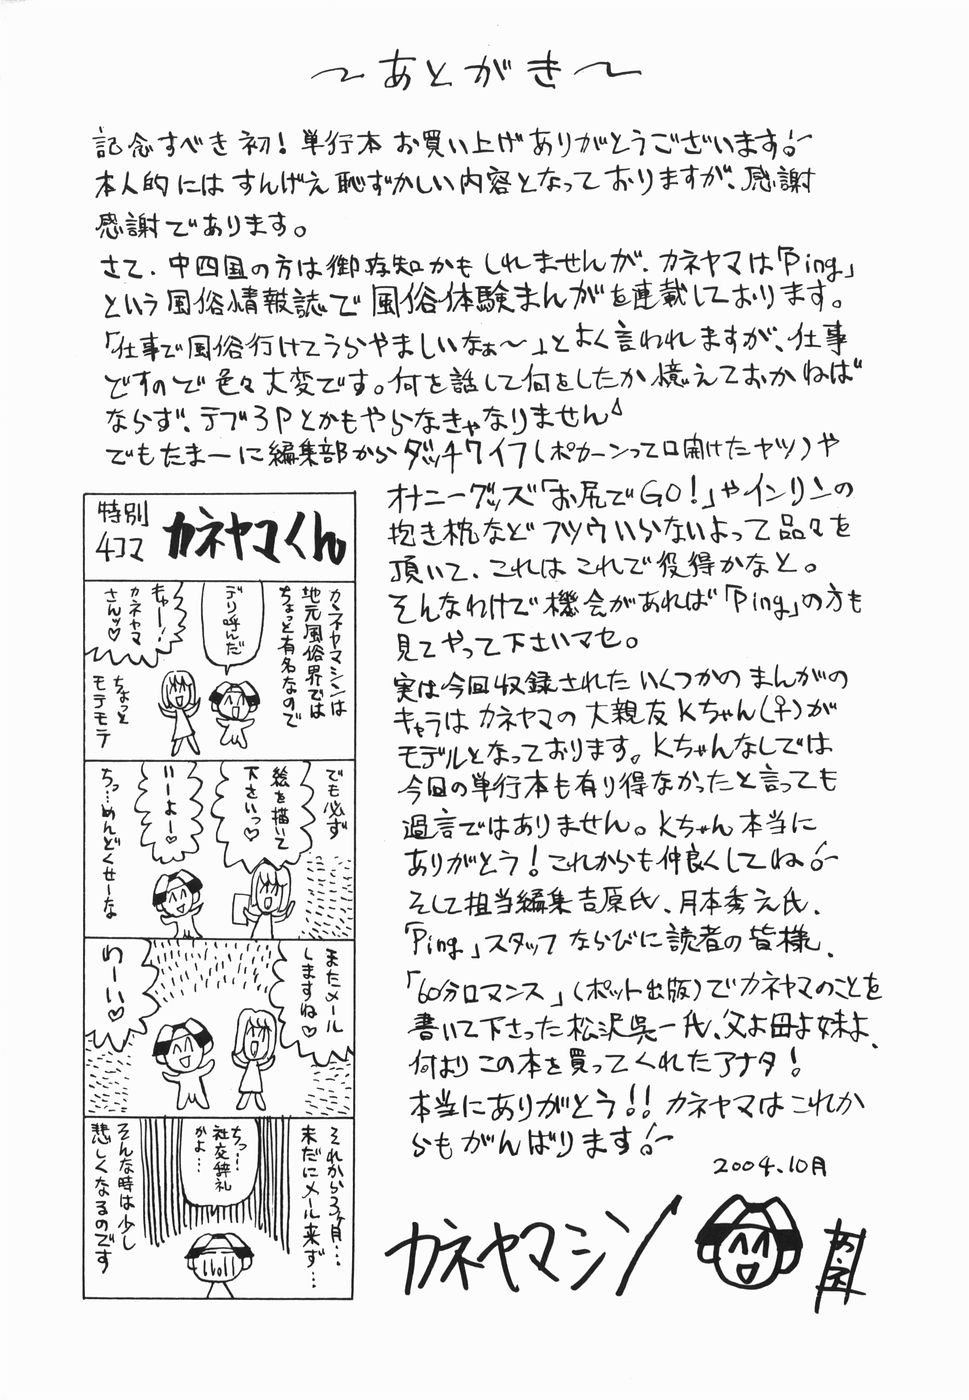 ～あとがき～
記念すべき初！単行本お買い上げありがとうございます！
本人的にはすんげえ恥ずかしい内容となっておりますが、感謝
感謝であります。
さて、中四国の方は御存知かもしれませんが、カネヤマは「Ping」
という風俗情報誌で風俗体験まんがを連載しております。
「仕事で風俗行けてうらやましいなぁ～」とよく言われますが、仕事
ですので色々大変です。何を話して何をしたか憶えておかねば
ならず、デブ3Pとかもやらなきゃなりません
でもたまーに編集部からダッチワイフ(ポカーンって口開けたヤツ)や
オナニーグッズ「お尻でGO!」やインリンの
抱き枕などフツウいらないよって品々を
頂いて、これはこれで役得かなと。
そんなわけで機会があれば「Ping」の方も
見てやって下さいマセ。
実は今回収録されたいくつかのまんがの
キャラはカネヤマの大親友Kちゃん(♀)が
モデルとなっております。Kちゃんなしでは
今回の単行本も有り得なかったと言っても
過言ではありません。Kちゃん本当に
ありがとう！これからも仲良くしてね！
そして担当編集吉原氏、月本秀之氏、
「Ping」スタッフならびに読者の皆様、
「60分ロマンス」(ポット出版)でカネヤマのことを
書いて下さった松沢呉一氏、父よ母よ妹よ、
何よりこの本を買ってくれたアナタ！
本当にありがとう！！カネヤマはこれか
らもがんばります！
2004.10月
カネヤマシン
特別
4コマ
カネヤマくん
カネヤマシンは
地元風俗界では
ちょっと有名なので
デリ呼んだ
きゃー！
カネヤマ
さんッ♡
ちょっと
モテモテ
でも必ず
絵を描いて
下さいっ♡
いーよー♡
ちっ…めんどくせーな
またメール
しますね♡
わーい♡
それから3ヶ月…
未だにメール来ず…
ちっ…
社交辞礼
かよ…
そんな時は少し
悲しくなるのです